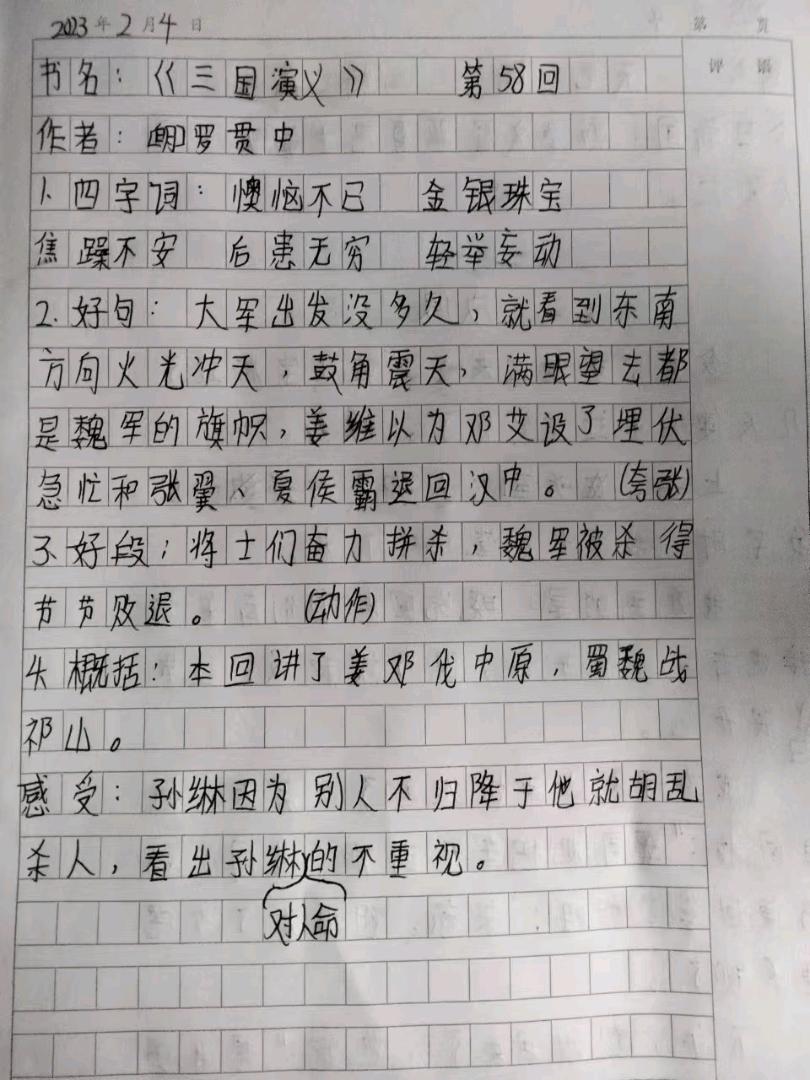 2023年2月4日 第 页
评 语
书名:《三国演义》 第58回
作者:(明)罗贯中
1.四字词:懊恼不已 金银珠宝
焦躁不安 后患无穷 轻举妄动
2.好句:大军出发没多久,就看到东南
方向火光冲天,鼓角震天,满眼望去都
是魏军的旗帜,姜维以为邓艾设了埋伏
急忙和张翼、夏侯霸退回汉中。(夸张)
3.好段:将士们奋力拼杀,魏军被杀得
节节败退。(动作)
4.概括:本回讲了姜邓伐中原,蜀魏战
祁山。
感受:孙綝因为别人不归降于他就胡乱
杀人,看出孙綝的不重视。
对人命